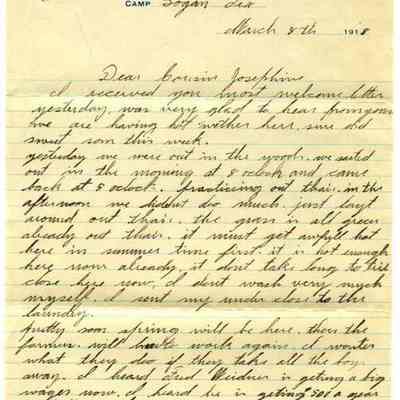 CAMP Logan Tex
March 8th 1918
Dear Cousin Josephine
I received you most welcome letter
yesterday. was very glad to hear from you
we are having hot wether here, sure did
sweat som this week.
yesterday we were out in the woods. we
out in the morning at 8 oclock and came
back at 8 oclock. practiseing out thair. in the
afternoon we didnt doo much. just layt
around out thair. the grass is all green
already out thair. it must get awfull hot
here in summer time first. it is hot enough
here now already, it dont take long to
close here now. I dont wash very much
myself. I sent my under close to the
laundry.
pretty soon spring will be here. then the
farmer will have to work again. I wonter
what they doo if they take all the boys
away. I heard Fred Weidner is geting a big
wages now. I heard he is geting 500 a year